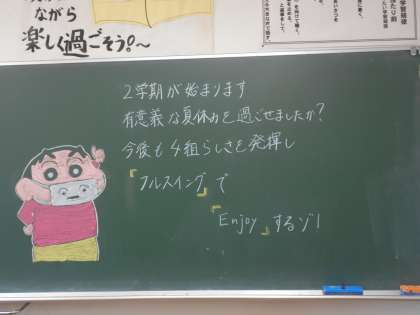 ながら
楽しく過ごそう。～
2学期が始まります
有意義な夏休みを過ごせましたか?
今後も4組らしさを発揮し
『フルスイング』で
『Enjoy』するゾ!
学習規律